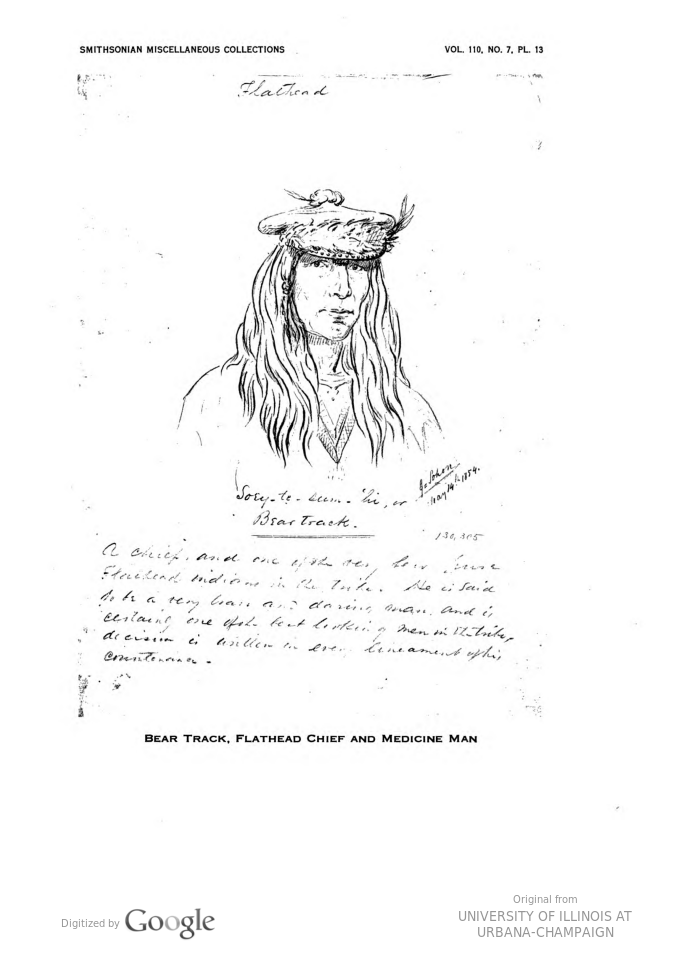 SMITHSONIAN MISCELLANEOUS COLLECTIONS VOL. 110, NO. 7, PL. 13
Flathead
Soey-te-sum-'hi, or
Bear Track.
G. Sohon
May 14th 1854.
130,305
A chief, and one of the very few pure
Flathead Indians in the tribe. He is said
to be a very brave and daring man, and is
certainly one of the best looking men in the tribe,
decision is written in every lineament of his
countenance.
BEAR TRACK, FLATHEAD CHIEF AND MEDICINE MAN
Digitized by Google
Original from
UNIVERSITY OF ILLINOIS AT
URBANA-CHAMPAIGN